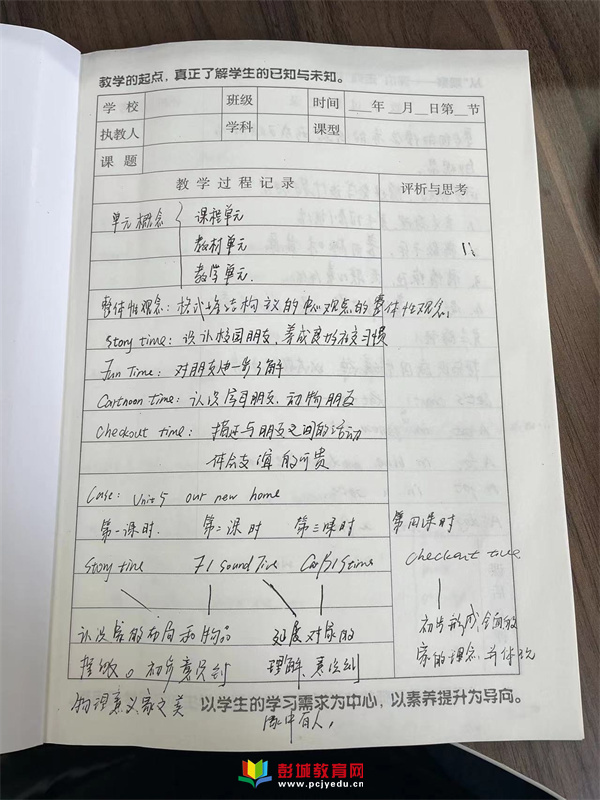 教学的起点，真正了解学生的已知与未知。
学 校 班级 时间 ___年___月___日第___节
执教人 学科 课型
课 题
教 学 过 程 记 录 评析与思考
单元概念 { 课程单元
教材单元
教学单元.
整体性观念：格式塔结构 的 观点的整体性观念，
Story time：认识校园朋友，养成良好社交习惯
Fun Time：对朋友进一步了解
Cartnoon time：认识字母朋友，动物朋友
Checkout time：描述与朋友之间的活动
体会友谊的可贵
Case：Unit 5 our new home
第一课时. 第二课时 第三课时 第四课时
Story time Sound Time time Checkout time
认识家的布局和物品 延展对家的 初步形成全面的
摆放。初步意识到 理解，意识到 家的理念，并体
物理意义家之美 家中有人，
以学生的学习需求为中心，以素养提升为导向。
彭城教育网
www.pcjyedu.cn